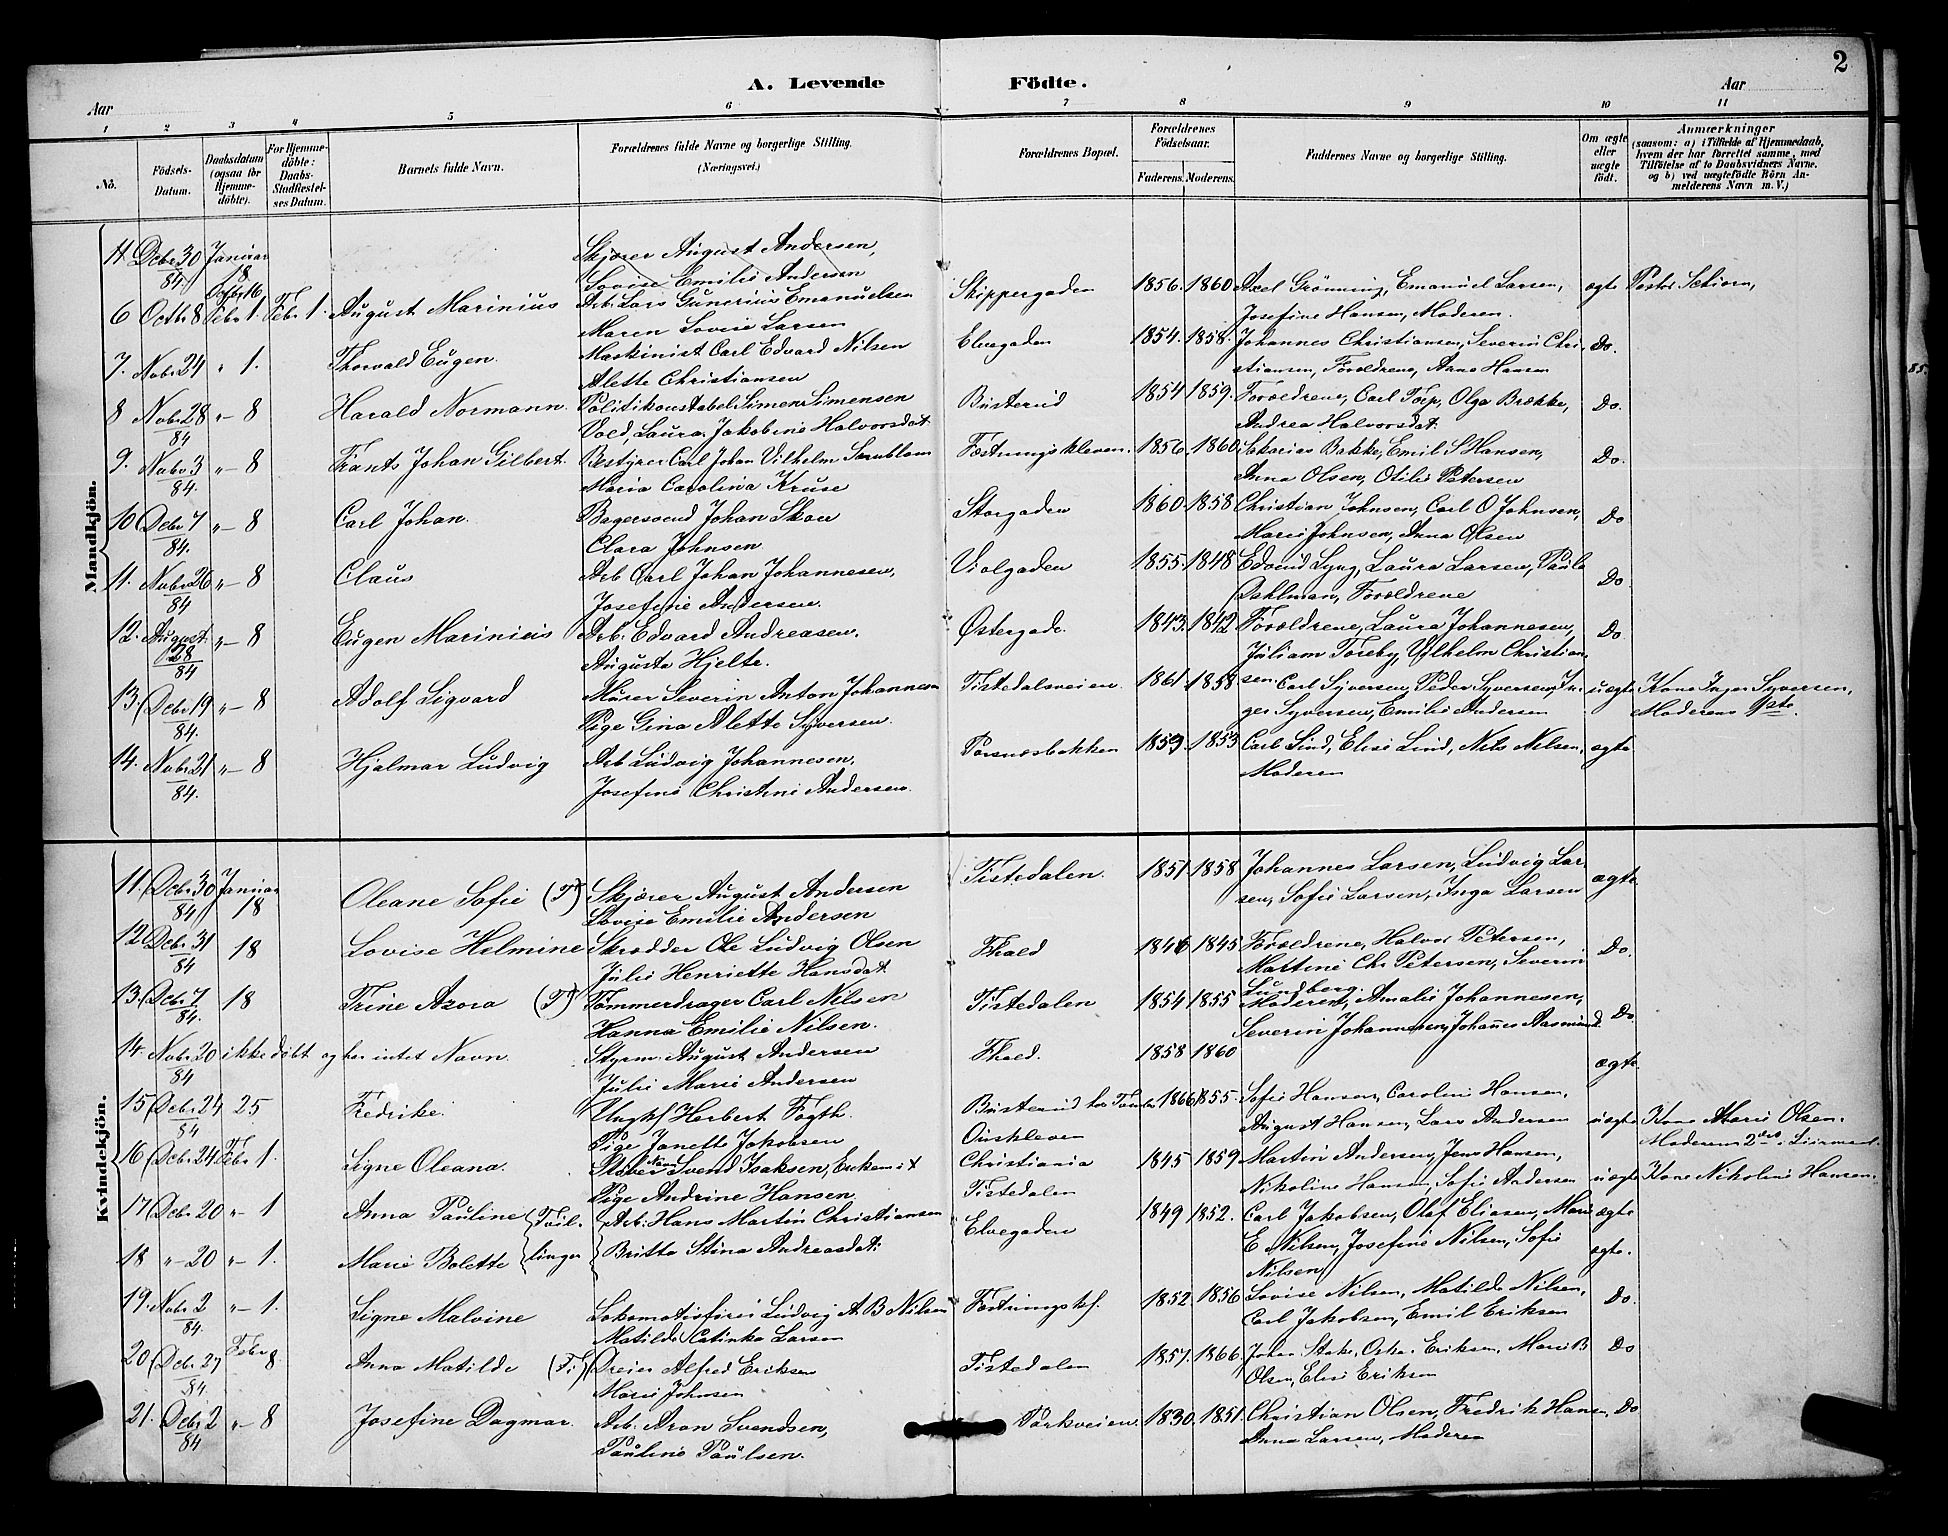 2
A. Levende Födte.
Aar Aar
1 2 3 4 5 6 7 8 9 10 11
No. Födsels-Datum. Daabsdatum (ogsaa for Hjemme-döbte). For Hjemme-döbte: Daabs-Stadfæstel-ses Datum. Barnets fulde Navn. Forældrenes fulde Navne og borgerlige Stilling. (Næringsvei.) Forældrenes Bopæl. Forældrenes Födselsaar. Faderens. Moderens. Faddernes Navne og borgerlige Stilling. Om ægte eller uægte födt. Anmærkninger (saasom: a) i Tilfælde af Hjemmedaab, hvem der har forrettet samme, med Tilföielse af to Daabsvidners Navne. og b) ved uægtefödte Börn An-melderens Navn m. V.)
Mandkjön.
11. Debr 30 Januar Skjærer August Andersen,
84 18 Lovise Emilie Andersen
6 Octbr 8 Octbr 16 Febr 1. Febr 1. August Marinius Arb. Lars Gunerius Emanuelsen Skippergaden 1856. 1860 Axel Grönning, Emanuel Larsen, ægte Pastor
Maren Lovise Larsen Josefine Hansen, Moderen.
7. Nobr 24 " 1. Thorvald Eugen. Maskinist Carl Edvard Nilsen Elvegaden 1854. 1858. Johannes Christiansen, Severin Chri- Do.
Alette Christiansen stiansen, Forældrene, Anne Hansen
8 Nobr 28 "- 8 Harald Normann. Politikonstabel Simen Simensen Busterud 1854 1859. Forældrene, Carl Torp, Olga Brække, Do.
84 Vold, Laura Jakobine Halvorsdat. Andrea Halvorsdat.
9. Nobr 3 "- 8 Frants Johan Gilbert. Bestyrer Carl Johan Vilhelm Fæstningskleven. 1856. 1860 Sakarias Bakke, Emil S Hansen, Do.
84. Maria Carolina Kruse Anna Olsen, Otilie Petersen
10 Debr 7 "- 8 Carl Johan. Bagersvend Johan Skaer Storgaden 1860. 1858 Christian Johnsen, Carl O Johnsen, Do
84. Clara Johnsen Marie Johnsen, Anna Olsen
11. Nobr 26 "- 8 Claus Arb Carl Johan Johannesen, Violgaden 1855. 1848 Edvind Lyng, Laura Larsen, Paule Do.
84 Josefine Andersen. Dahlman, Forældrene
12. August "- 8 Eugen Marinius Arb. Edvard Andreasen. Østergade. 1843. 1842 Forældrene, Laura Johannesen, Do
28 84 Augusta Hjelte. Juliam Toseby, Vilhelm Christian-
13. Debr 19 "- 8 Adolf Sigvard Murer Severin Anton Johannesen Tistedalsveien. 1861. 1858 sen. Carl Syversen, Peder Syversen, In- uægte Kone Inger Syversen,
84. Pige Gina Alette Syversen. ger Syversen, Emilie Andersen Moderens 1ste.
14. Nobr 21 "- 8 Hjalmar Ludvig Arb Ludvig Johannesen, Porsnesbakken 1853. 1853 Carl Lind, Elise Lind, Nils Nilsen, ægte
84. Josefine Christine Andersen. Moderen
Kvindekjön.
11. Debr 30 Januar Oleane Sofie (T) Skjærer August Andersen Tistedalen. 1851. 1858 Johannes Larsen, Ludvig Lar- ægte
84 18 Lovise Emilie Andersen sen, Sofie Larsen, Inga Larsen
12 Debr 31 18 Lovise Helmine Skrædder Ole Ludvig Olsen Fhald 1846 1845 Forældrene, Halvor Petersen, Do.
84 Julie Henriette Hansdat. Martine Chr Petersen, Severin Lundberg.
13. Debr 7 18 Trine Azora (T) Tömmerdrager Carl Nilsen Tistedalen 1854 1855 Moderen, Amalie Johannesen, Do
84. Hanna Emilie Nilsen. Severin Johannesen, Johannes Aasmund.
14. Nobr 20 ikke döbt og har intet Navn. Styrm. August Andersen Fhald. 1858 1860 ægte.
84 Julie Marie Andersen
15 Debr 24 25 Fredrike. Ungkf Herbert Fogth. Busterud 1866 1855. Sofie Hansen, Caroline Hansen, uægte Kone Marie Olsen.
84 Pige Janette Jakobsen August Hansen, Lars Andersen Moderens 2det
16 Debr 24 Febr 1. Signe Oleana. Svend Isaksen, Enkemd Christiania 1845 1859 Martin Andersen, Jens Hansen, uægte Kone Nikoline Hansen.
Pige Andrine Hansen Tistedalen Nikoline Hansen, Sofie Andersen
17 Debr 20 "- 1 Anna Pauline {Tvil- Arb: Hans Martin Christiansen Elvegaden 1849 1852. Carl Jakobsen, Olaf Eliasen, Marie ægte
18 "- 20 "- 1. Marie Bolette linger Britta Stina Andreasdat. E Nilsen, Josefine Nilsen, Sofie Nilsen ægte.
19. Nobr 2 "- 1. Signe Malvine Lokomotivfører Ludvig A. B Nilsen Fæstningskf. 1852. 1856 Lovise Nilsen, Matilde Nilsen, Do.
84. Matilde Catinka Larsen Carl Jakobsen, Emil Eriksen
20 Debr 27 Febr 8. Anna Matilde (Ti) Dreier Alfred Eriksen Tistedalen 1857. 1866. Johan Stake, Oskar Eriksen, Marie B Do
84. Marie Johnsen Olsen, Elise Eriksen
21. Debr 2 "- 8 Josefine Dagmar. Arb. Aron Svendsen, Parkveien. 1830. 1851. Christian Olsen, Fredrik Hansen Do
84 Pauline Paulsen. Anna Larsen, Moderen